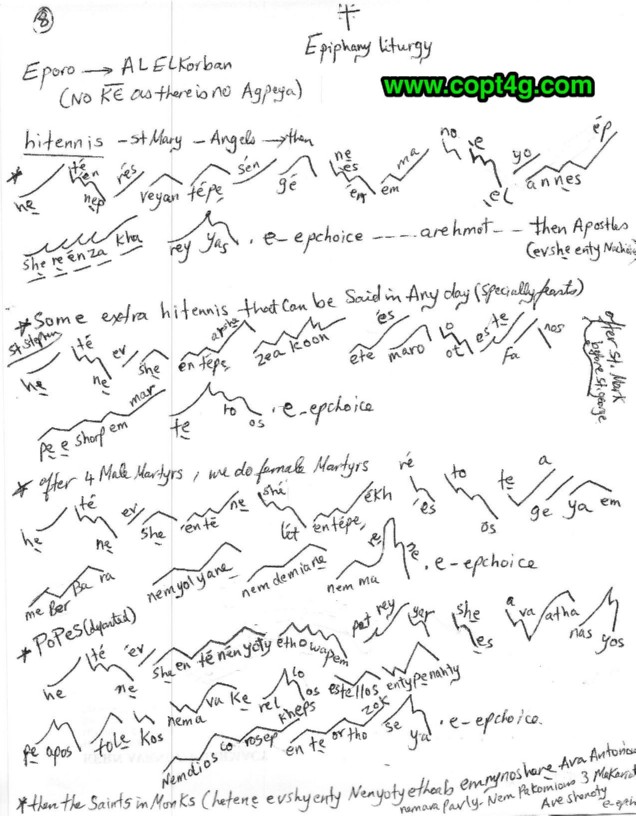 8
Epiphany Liturgy
Eporo → ALELKorban
(No KE as there is no Agpeya)
www.copt4g.com
hitennis - st Mary - Angels → then
* he té nep rés veyan tépe sén gé ne es em ma no e el yo annes ép
she re én za kha rey yas . e - epchoice ---- arehmot -- then Apostles
(evshe enty
* Some extra hitennis that can be Said in Any day (specially feasts)
St Stephen
he té ne er she en tépe zea koon ete és maro to ot es te fa nos
after St. Mark
before St. George
pe e shorp em mar te ro os . e - epchoice
* after 4 Male Martyrs, we do female Martyrs
he té ne er she en te ne shé lét en tépe, ékh ré és to os te ge a ya em
me Ber Ba ra nem yolyane nem demiane nem ma re . e - epchoice
* PoPes (departed)
he té ne ér she en té nen yoty etho wapem pat rey yar she es a va atha nas yos
pe apos tole kos nema va Ke rel lo os estellos enty penahty
Nem dios co rosep kheps en te ortho zok se ya . e - epchoice.
* then the Saints in Monks (hetene evshyenty Nenyotyethoab emmynoshane Ava Antonios
nemava pavly - Nem Pakomious 3 Makarat
Ave shenoty